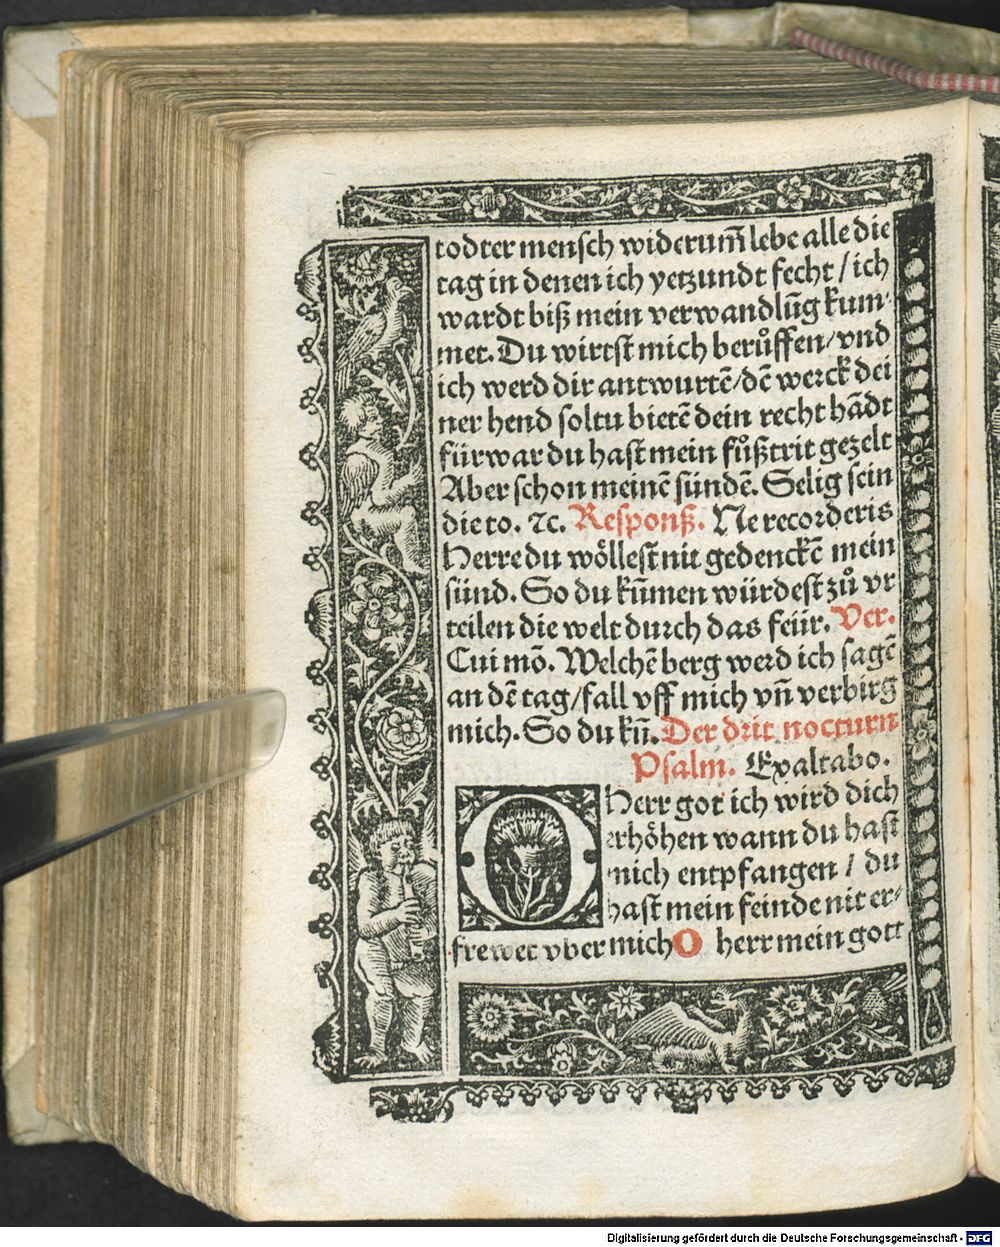 todter mensch widerum̃ lebe alle die
tag in denen ich yetzundt fecht / ich
wardt biß mein verwandlũg kum-
met. Du wirtst mich berůffen/vnd
ich werd dir antwurtẽ/dẽ werck dei
ner hend soltu bietẽ dein recht hãdt
fürwar du hast mein fůßtrit gezelt
Aber schon meinẽ sündẽ. Selig sein
die to. ⁊c. Responß. Ne recorderis
Herre du wöllest nit gedenckẽ mein
sünd. So du kũmen würdest zů vr
teilen die welt durch das feür. Ver.
Cui mõ. Welchẽ berg werd ich sagẽ
an dẽ tag/fall vff mich vñ verbirg
mich. So du kũ. Der drit nocturn
Psalm. Exaltabo.
O Herr got ich wird dich
erhöhen wann du hast
mich entpfangen / du
hast mein feinde nit er-
frewet vber mich O herr mein gott
Digitalisierung gefördert durch die Deutsche Forschungsgemeinschaft - DFG